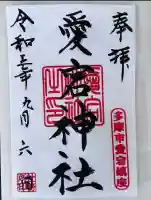 奉拝
愛宕神社
多摩市愛宕鎮座
令和三年九月六